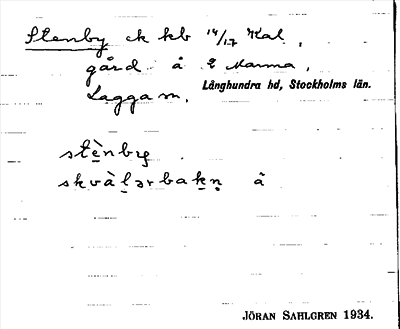 Stenby ek kb 14/17 Kal.,
gård å 2 Manna,
Lagga sn, Långhundra hd, Stockholms län.
stènby
skvàlərbakn å
JÖRAN SAHLGREN 1934.